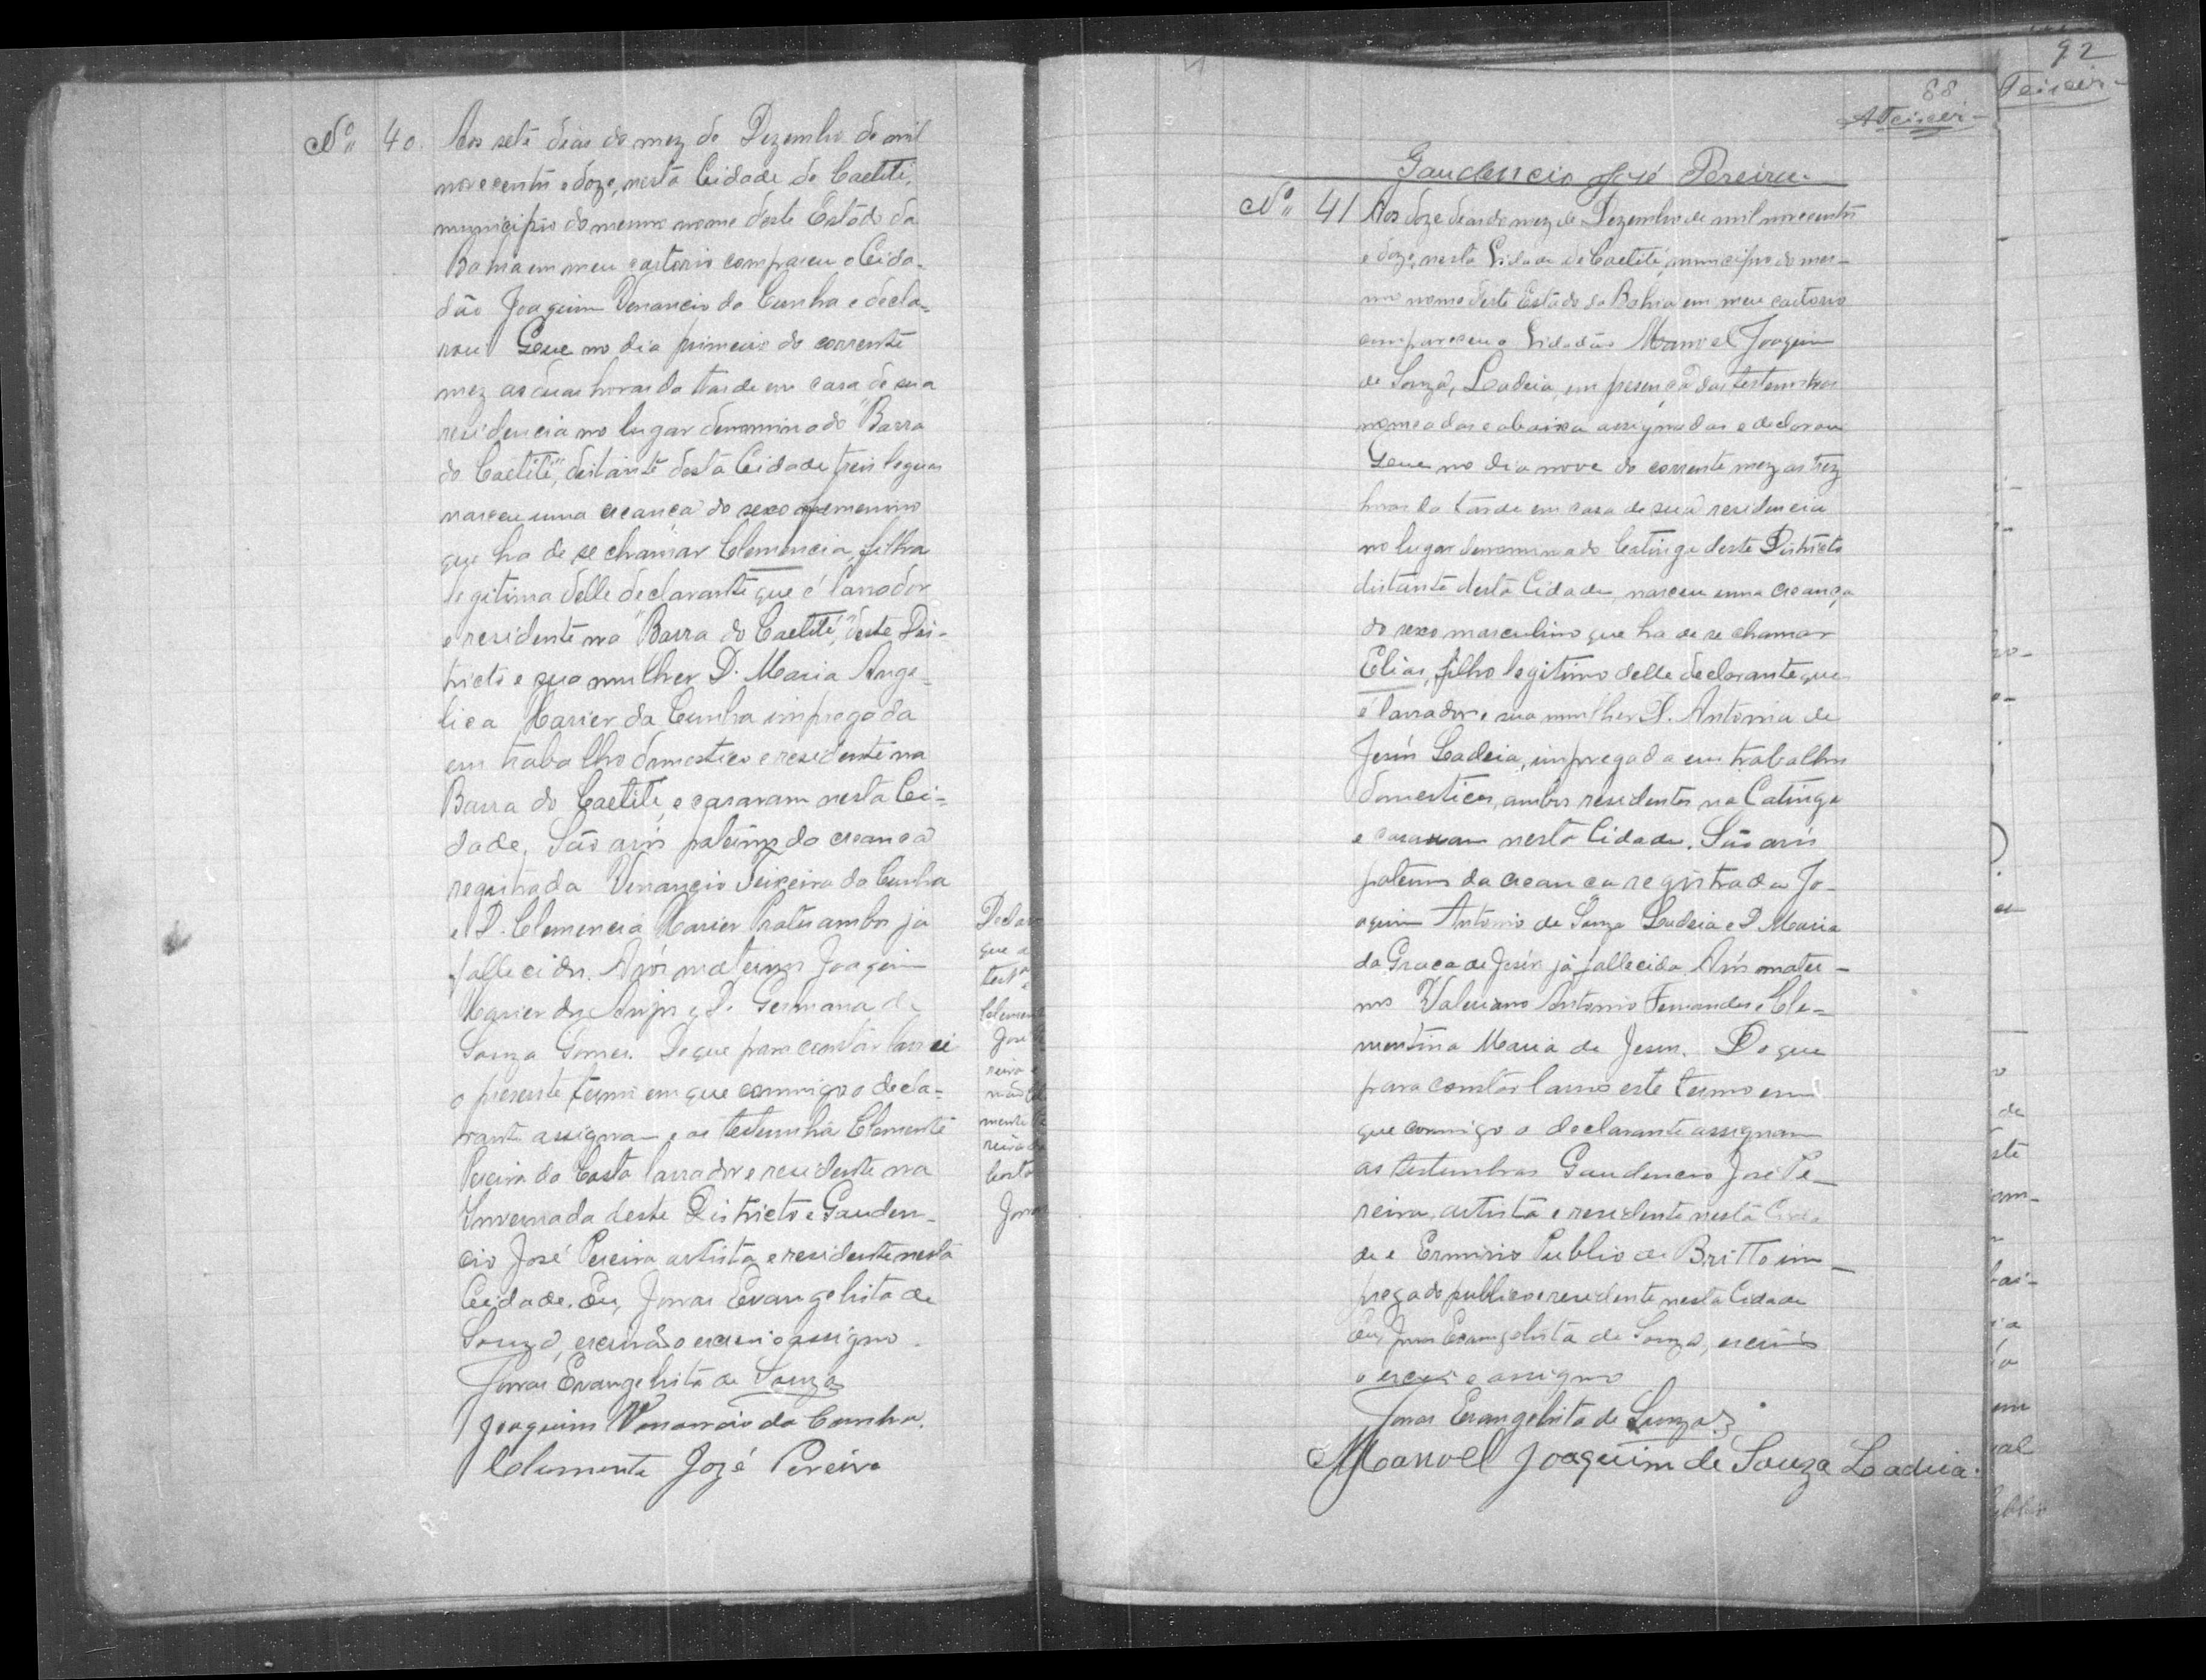 Nº 40. Aos sete dias do mez de Dezembro de mil
novecentos e doze, nesta Cidade de Caetité,
municipio do mesmo nome deste Estado da
Bahia em meu cartorio compareceu o Cida-
dão Joaquim Venancio da Cunha e decla-
rou Que no dia primeiro do corrente
mez as duas horas da tarde em casa de sua
residencia no lugar denominado "Barra
do Caetité", distante desta Cidade tres leguas
nasceu uma creança do sexo femenino
que ha de se chamar Clemencia, filha
legitima delle declarante que é lavrador
e residente na "Barra do Caetité", deste Dis-
tricto e sua mulher D. Maria Ange-
lica Xavier da Cunha impregada
em trabalho domestico e residente na
Barra do Caetité, e casaram nesta Ci-
dade. São avós paternos da creança
registrada Venancio Teixeira da Cunha
e D. Clemencia Xavier Prates ambos já
fallecidos. Avós maternos Joaquim
Xavier dos Anjos e D. Germana de
Souza Gomes. Do que para constar lavrei
o presente termo em que commigo o decla-
rante assignam e as testemunha Clemente
Pereira da Costa lavrador e residente na
Invernada deste Districto e Gauden-
cio José Pereira artista e residente nesta
Cidade. Eu, Jonas Evangelista de
Souza, escrivão o escrevi e assigno.
Jonas Evangelista de Souza
Joaquim Venancio da Cunha.
Clemente Jozé Pereira
Declaro
que a
testª
Clemente
José
reira e
não Cle
mente Pe
reira da
Costa
Jonas
92
Teixeir-
88
ATeixeir-
Gaudencio José Pereira
Nº 41 Aos doze dias do mez de Dezembro de mil novecentos
e doze, nesta Cidade de Caetité, municipio do mes-
mo nome deste Estado da Bahia em meu cartorio
compareceu o Cidadão Manoel Joaquim
de Souza, Ladeia, em presença das testemunhas
nomeadas e abaixo assignadas e declarou
Que no dia nove do corrente mez as trez
horas da tarde em casa de sua residencia
no lugar denominado Catinga deste Districto
distante desta Cidade, nasceu uma creança
do sexo masculino que ha de se chamar
Elias, filho legitimo delle declarante que
é lavrador e sua mulher D. Antonia de
Jesús Ladeia, impregada em trabalhos
domesticos, ambos residentes na Catinga
e casaram nesta Cidade. São avós
paternos da creança registrada Jo-
aquim Antonio de Souza Ladeia e D. Maria
da Graça de Jesús já fallecida. Avós mater-
nos Valeriano Antonio Fernandes e Cle-
mentina Maria de Jesus. Do que
para constar lavro este termo em
que commigo o declarante assignam
as testemunhas Gaudencio José Pe-
reira, artista e residente nesta Cida
de e Erminio Publio de Britto im-
pregado publico e residente nesta Cidade
Eu, Jonas Evangelista de Souza, escrivão
o escrevi e assigno
Jonas Evangelista de Souza
Manoel Joaquim de Souza Ladeia.